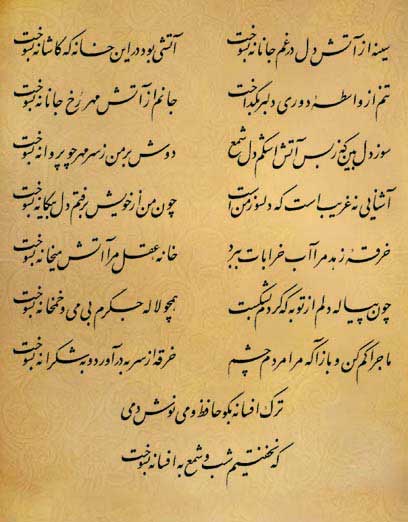 سینه از آتش دل در غم جانانه بسوخت آتشی بود در این خانه که کاشانه بسوخت
تنم از واسطهٔ دوری دلبر بگداخت جانم از آتش مهر رُخ جانانه بسوخت
سوز دل بین که ز بس آتش اشکم دل شمع دوش بر من ز سر مهر چو پروانه بسوخت
آشنایی نه غریب است که دلسوز من است چون من از خویش برفتم دل بیگانه بسوخت
خرقهٔ زهد مرا آب خرابات ببرد خانه عقل مرا آتش میخانه بسوخت
چون پیاله دلم از توبه که کردم بشکست همچو لاله جگرم بی می و خمخانه بسوخت
ماجرا کم کن و بازآ که مرا مردم چشم خرقه از سر به درآورد و به شکرانه بسوخت
ترک افسانه بگو حافظ و می نوش دمی
که نخفتیم شب و شمع به افسانه بسوخت